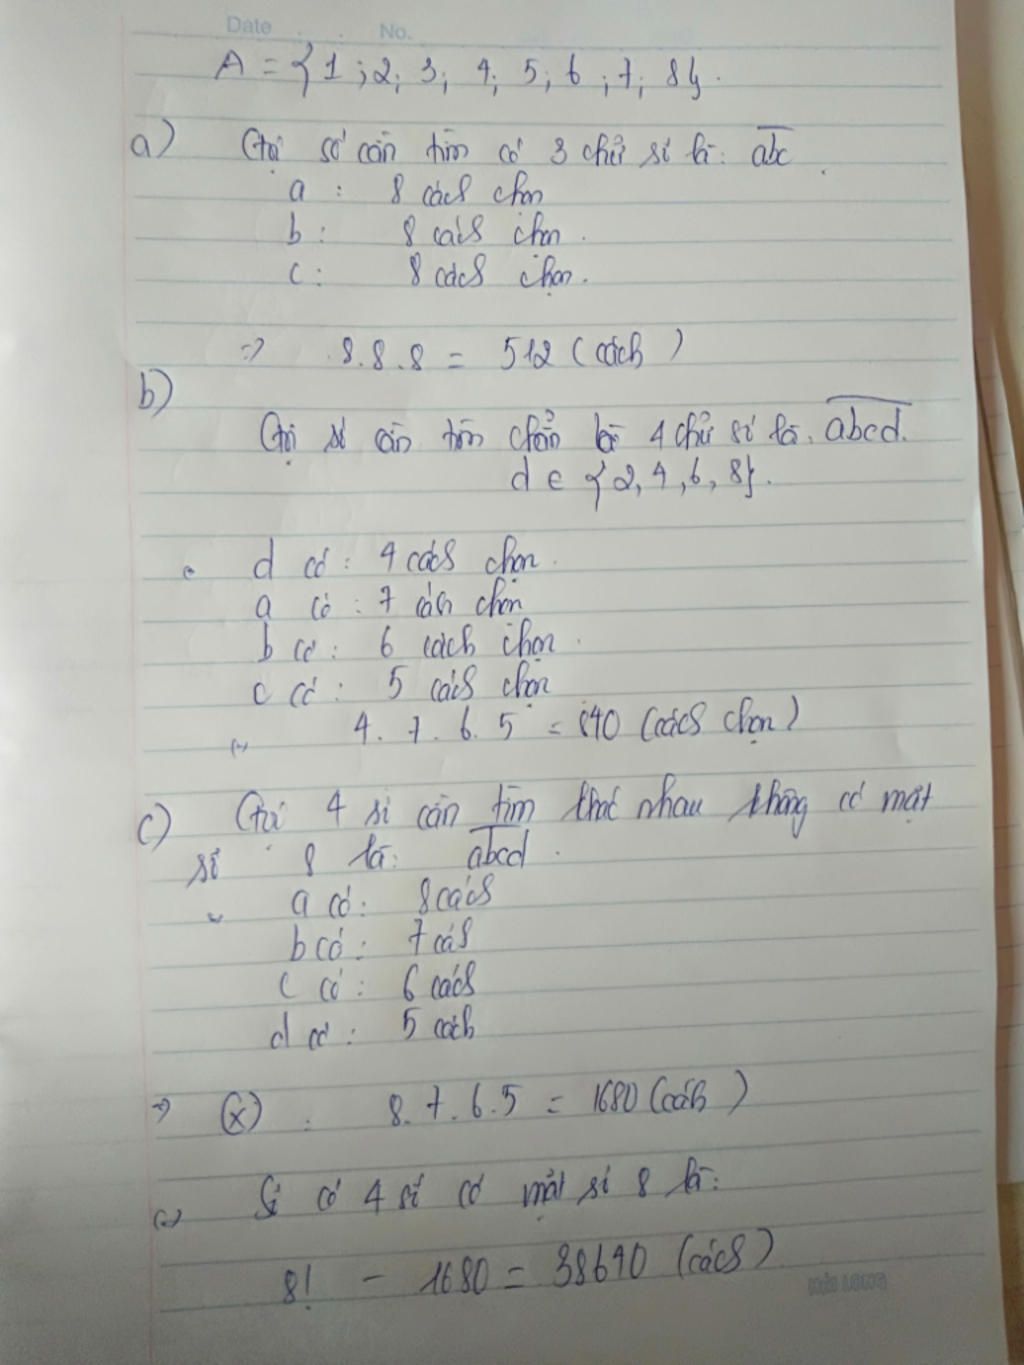 Date No.
A = {1 ; 2; 3; 4; 5; 6 ; 7; 8}.
a) Gọi số cần tìm có 3 chữ số là: abc
a : 8 cách chọn
b : 8 cách chọn.
c : 8 cách chọn.
=> 8.8.8 = 512 (cách)
b)
Gọi số cần tìm chẵn có 4 chữ số là. abcd.
d ∈ {2, 4, 6, 8}.
d có : 4 cách chọn.
a có : 7 cách chọn
b có : 6 cách chọn.
c có : 5 cách chọn
4. 7. 6. 5 = 840 (cách chọn)
c) Gọi 4 số cần tìm khác nhau không có mặt
số 8 là: abcd.
a có: 8 cách
b có: 7 cách
c có: 6 cách
d có: 5 cách
=> (x) : 8. 7. 6. 5 = 1680 (cách)
Số có 4 số có mặt số 8 là:
8! - 1680 = 38640 (cách)